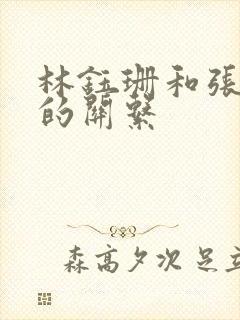 林鈺珊和張
的關繫
森高夕次 足立